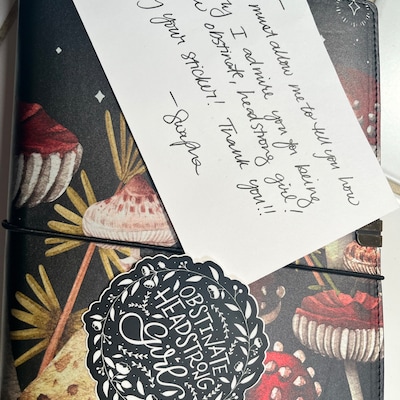 must allow me to tell you how
I admire you for being
obstinate, headstrong girl!
your sticker! Thank
you!!
OBSTINATE
HEADSTRONG
girl